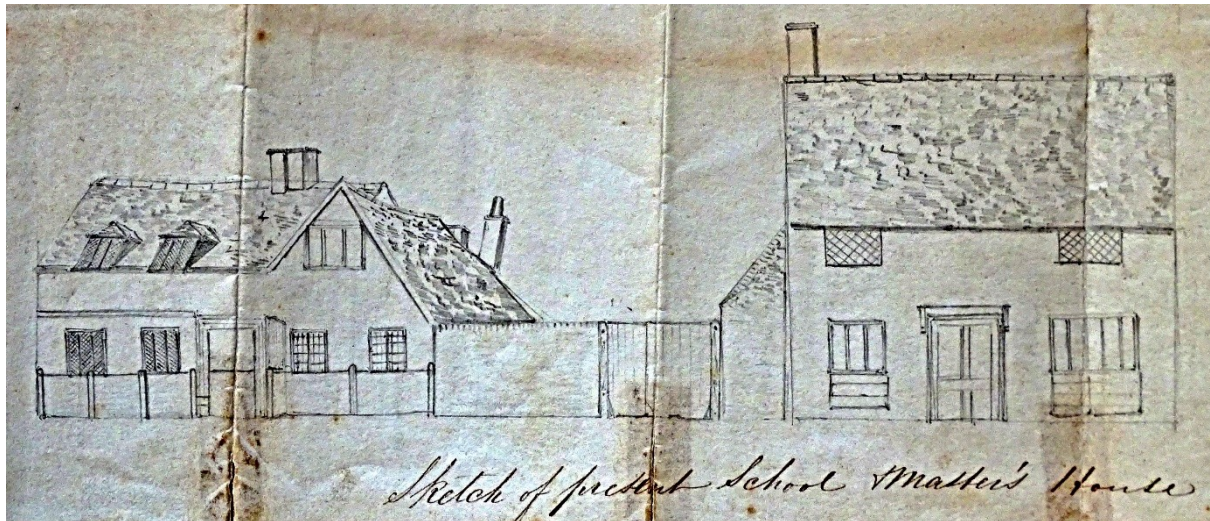 Sketch of present School Master's House